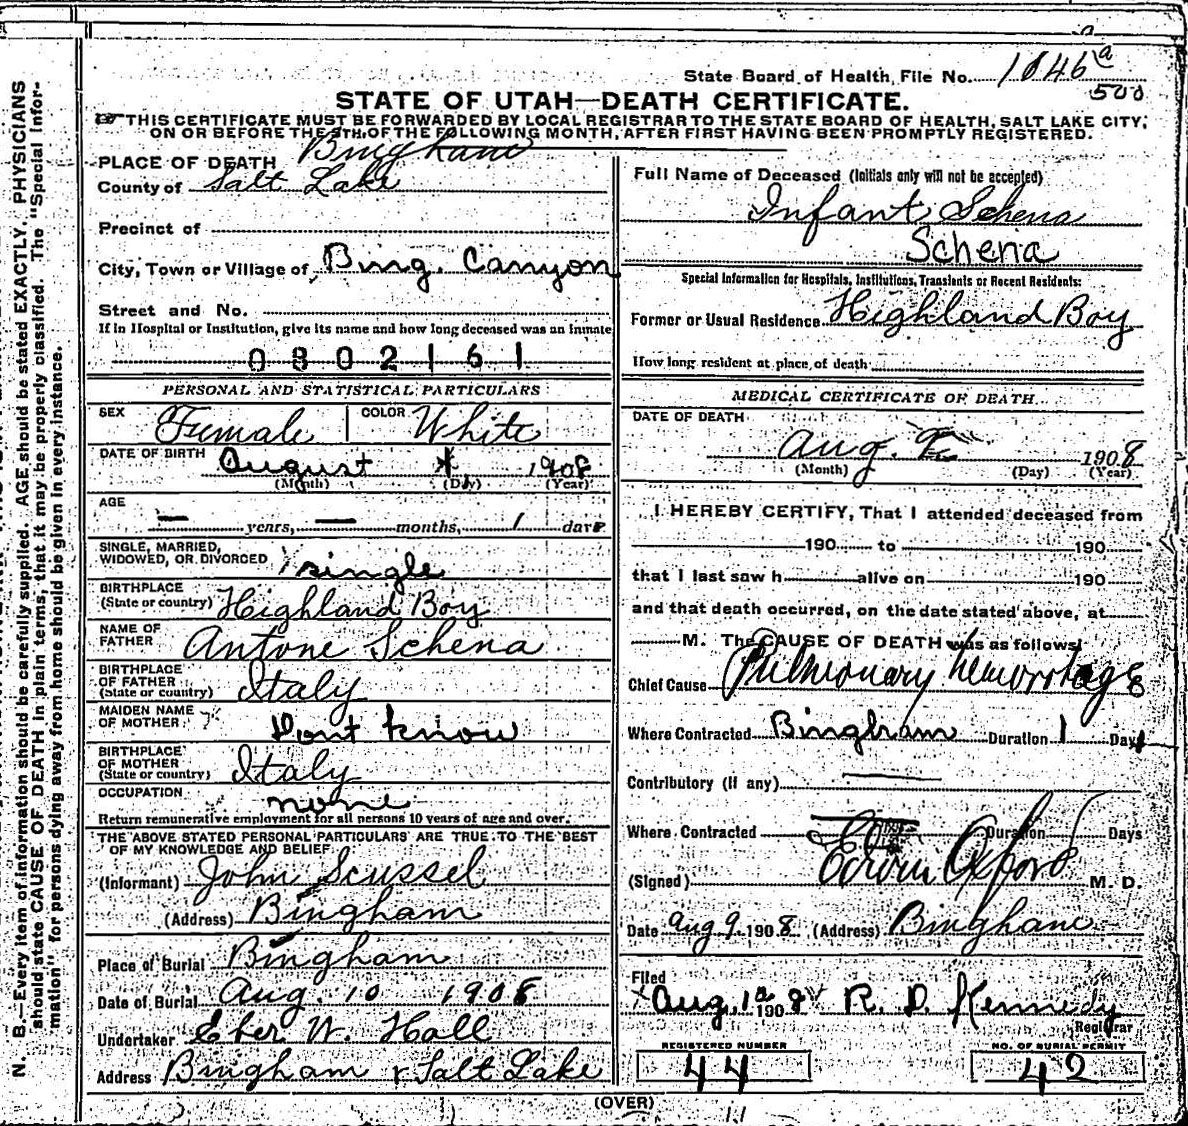 State Board of Health, File No. 1846 a
500
STATE OF UTAH—DEATH CERTIFICATE.
THIS CERTIFICATE MUST BE FORWARDED BY LOCAL REGISTRAR TO THE STATE BOARD OF HEALTH, SALT LAKE CITY,
ON OR BEFORE THE 5TH, OF THE FOLLOWING MONTH, AFTER FIRST HAVING BEEN PROMPTLY REGISTERED.
PLACE OF DEATH Bingham
County of Salt Lake
Precinct of
City, Town or Village of Bing. Canyon
Street and No.
If in Hospital or Institution, give its name and how long deceased was an inmate
0802161
PERSONAL AND STATISTICAL PARTICULARS
SEX Female COLOR White
DATE OF BIRTH August 1908
(Month) (Day) (Year)
AGE
— years, — months, 1 days
SINGLE, MARRIED,
WIDOWED, OR DIVORCED single
BIRTHPLACE
(State or country) Highland Boy
NAME OF
FATHER Antone Schena
BIRTHPLACE
OF FATHER
(State or country) Italy
MAIDEN NAME
OF MOTHER Dont know
BIRTHPLACE
OF MOTHER
(State or country) Italy
OCCUPATION none
Return remunerative employment for all persons 10 years of age and over.
THE ABOVE STATED PERSONAL PARTICULARS ARE TRUE TO THE BEST
OF MY KNOWLEDGE AND BELIEF
(Informant) John Scussel
(Address) Bingham
Place of Burial Bingham
Date of Burial Aug. 10 1908
Undertaker Eber W. Hall
Address Bingham & Salt Lake
Full Name of Deceased (Initials only will not be accepted)
Infant Schena
Schena
Special Information for Hospitals, Institutions, Transients or Recent Residents:
Former or Usual Residence Highland Boy
How long resident at place of death
MEDICAL CERTIFICATE OF DEATH
DATE OF DEATH
Aug. 1908
(Month) (Day) (Year)
I HEREBY CERTIFY, That I attended deceased from
190 to 190
that I last saw h alive on 190
and that death occurred, on the date stated above, at
M. The CAUSE OF DEATH was as follows:
Chief Cause Pulmonary hemorrhage
Where Contracted Bingham Duration 1 Days
Contributory (if any) —
Where Contracted Duration Days
(Signed) M. D.
Date Aug 9 1908 (Address) Bingham
Filed
Aug. 1908 R. D. Kennedy
Registrar
REGISTERED NUMBER
44
NO. OF BURIAL PERMIT
42
(OVER)
N. B.—Every item of information should be carefully supplied. AGE should be stated EXACTLY. PHYSICIANS
should state CAUSE OF DEATH in plain terms, that it may be properly classified. The "Special Infor-
mation" for persons dying away from home should be given in every instance.